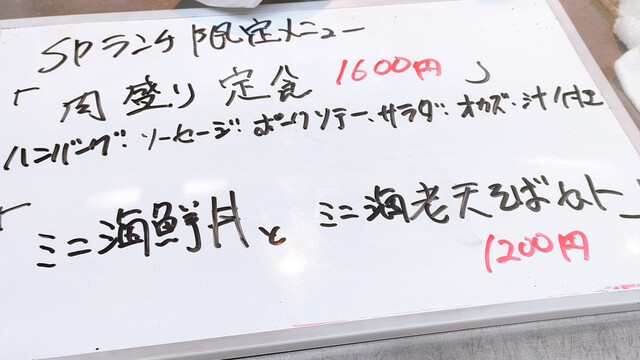 SPランチ限定メニュー
「肉盛り定食 1600円」
ハンバーグ・ソーセージ・ポークソテー、サラダ・オカズ・汁付
「ミニ海鮮丼とミニ海老天そばセット」
1200円